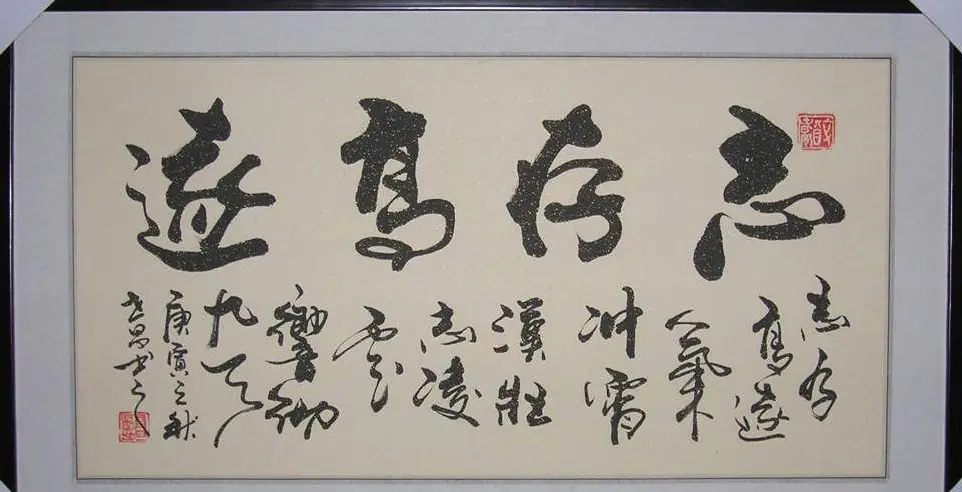 志存高遠
志存
高遠
氣
冲霄
漢壯
志凌
雲
響徹
九天
庚寅之秋
昌書之